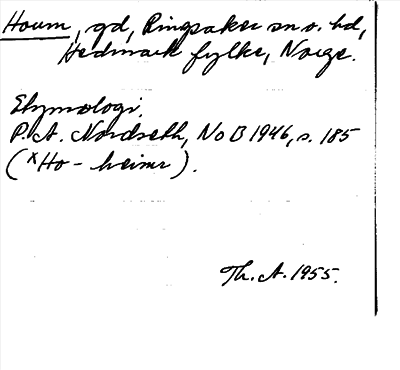 Houm, gd, Ringsaker sn o. hd,
Hedmark fylke, Norge.
Etymologi.
P. A. Nordseth, NoB 1946, s. 185
(xHo-heimr).
Th. A. 1955.